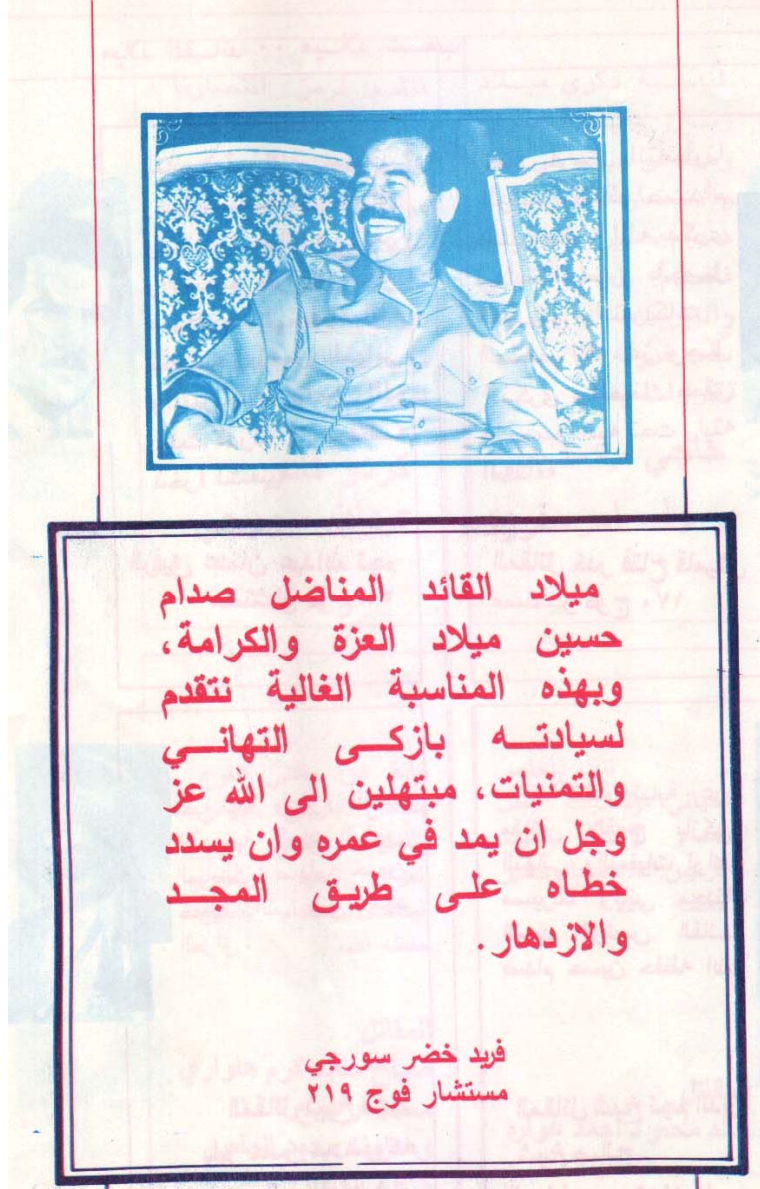 ميلاد القائد المناضل صدام
حسين ميلاد العزة والكرامة،
وبهذه المناسبة الغالية نتقدم
لسيادتـــه بازكــى التهانــي
والتمنيات، مبتهلين الى الله عز
وجل ان يمد في عمره وان يسدد
خطاه على طريق المجــد
والازدهار.
فريد خضر سورجي
مستشار فوج ٢١٩